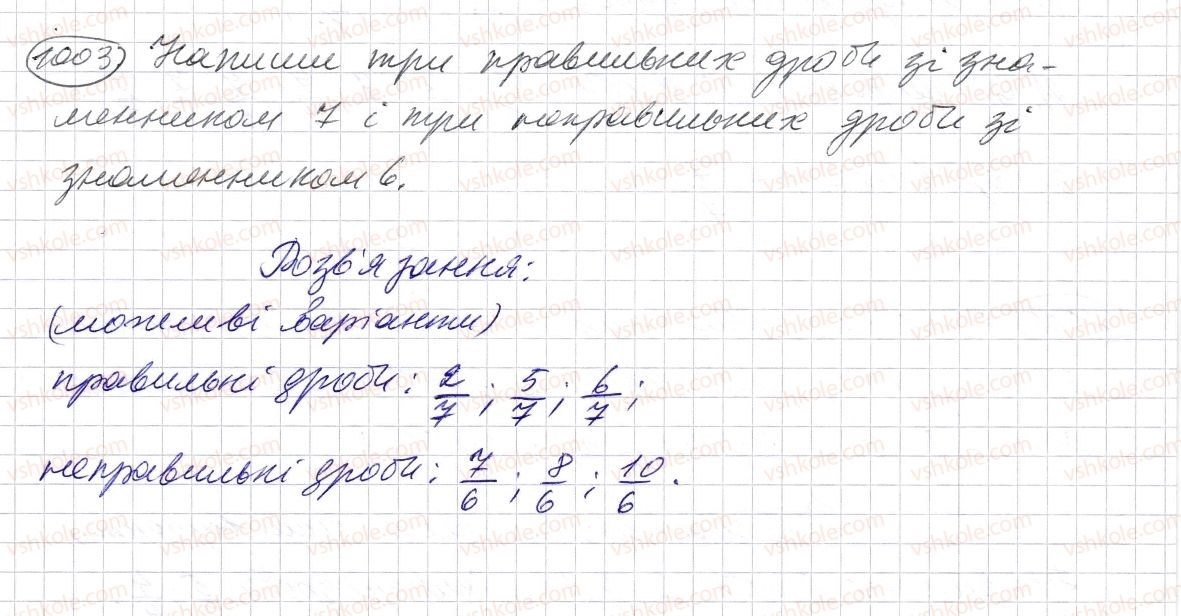 1003 Напиши три правильних дроби зі зна-
менником 7 і три неправильних дроби зі
знаменником 6.
Розв'язання:
(можливі варіанти)
правильні дроби: 2/7; 5/7; 6/7;
неправильні дроби: 7/6; 8/6; 10/6.